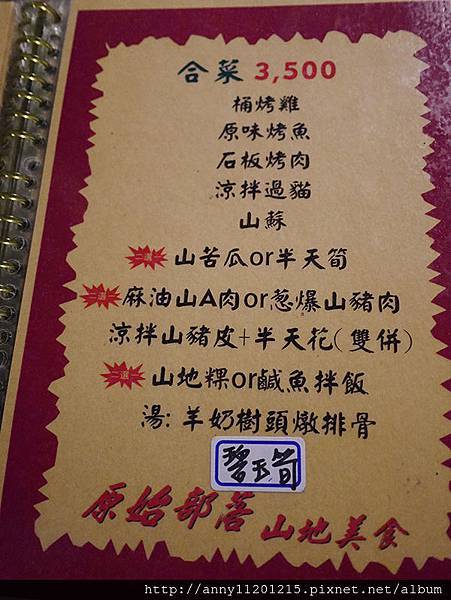 合菜 3,500
桶烤雞
原味烤魚
石板烤肉
涼拌過貓
山蘇
二選一 山苦瓜or半天筍
二選一 麻油山A肉or蔥爆山豬肉
涼拌山豬皮+半天花(雙併)
二選一 山地粿or鹹魚拌飯
湯: 羊奶樹頭燉排骨
碧玉筍
原始部落 山地美食
http://anny11201215.pixnet.net/album